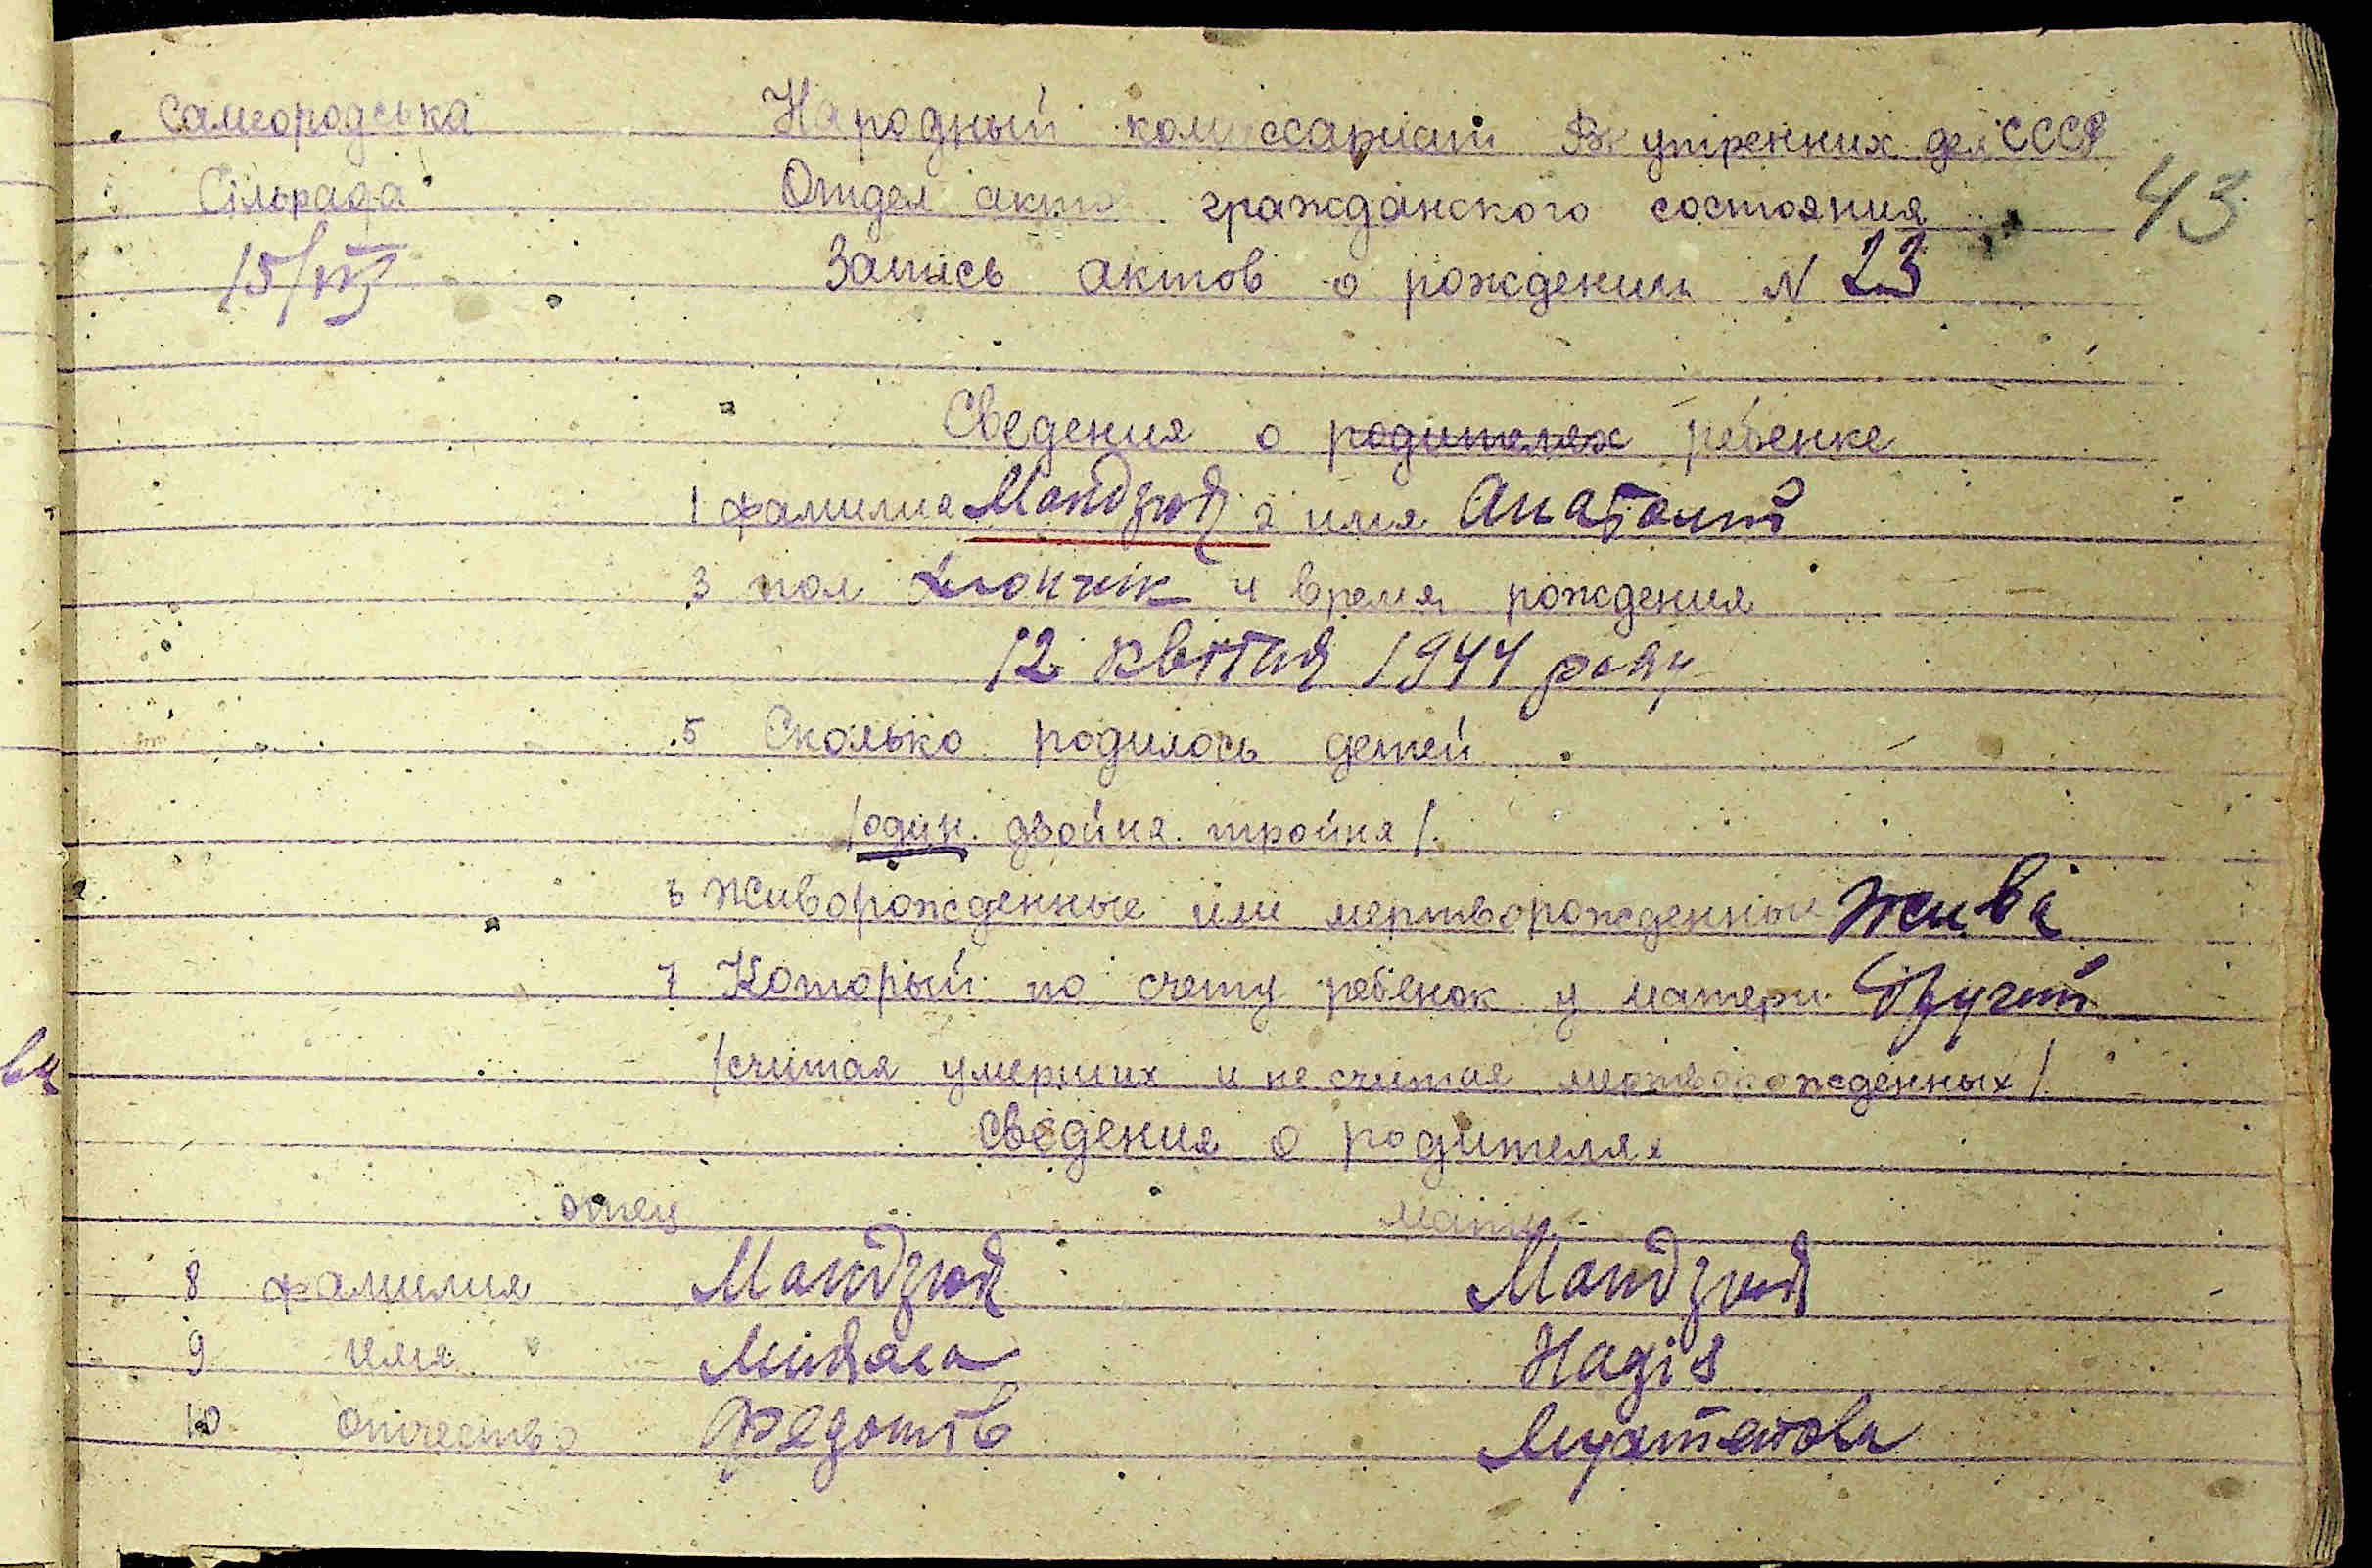 Самгородська Народный комиссариат Внутренних дел СССР
Сільрада Отдел акто гражданского состояния 43
15/VIII Запись актов о рождении N 23
Сведения о родителях ребенке
1 фамилиа Мандзюк 2 имя Анатолий
3 пол Хлопчик 4 Время рождения
12 квітня 1944 року
5 Сколько родилось детей
/один. двойня. тройня/.
6 Живорожденные или мертворожденные Живі
7 Который по счету ребенок у матери Другий
/считая умерших и не считая мертворожденных/.
Сведения о родителях
отец мать
8 фамилия Мандзюк Мандзюк
9 имя Надія
10 отчество Федотов